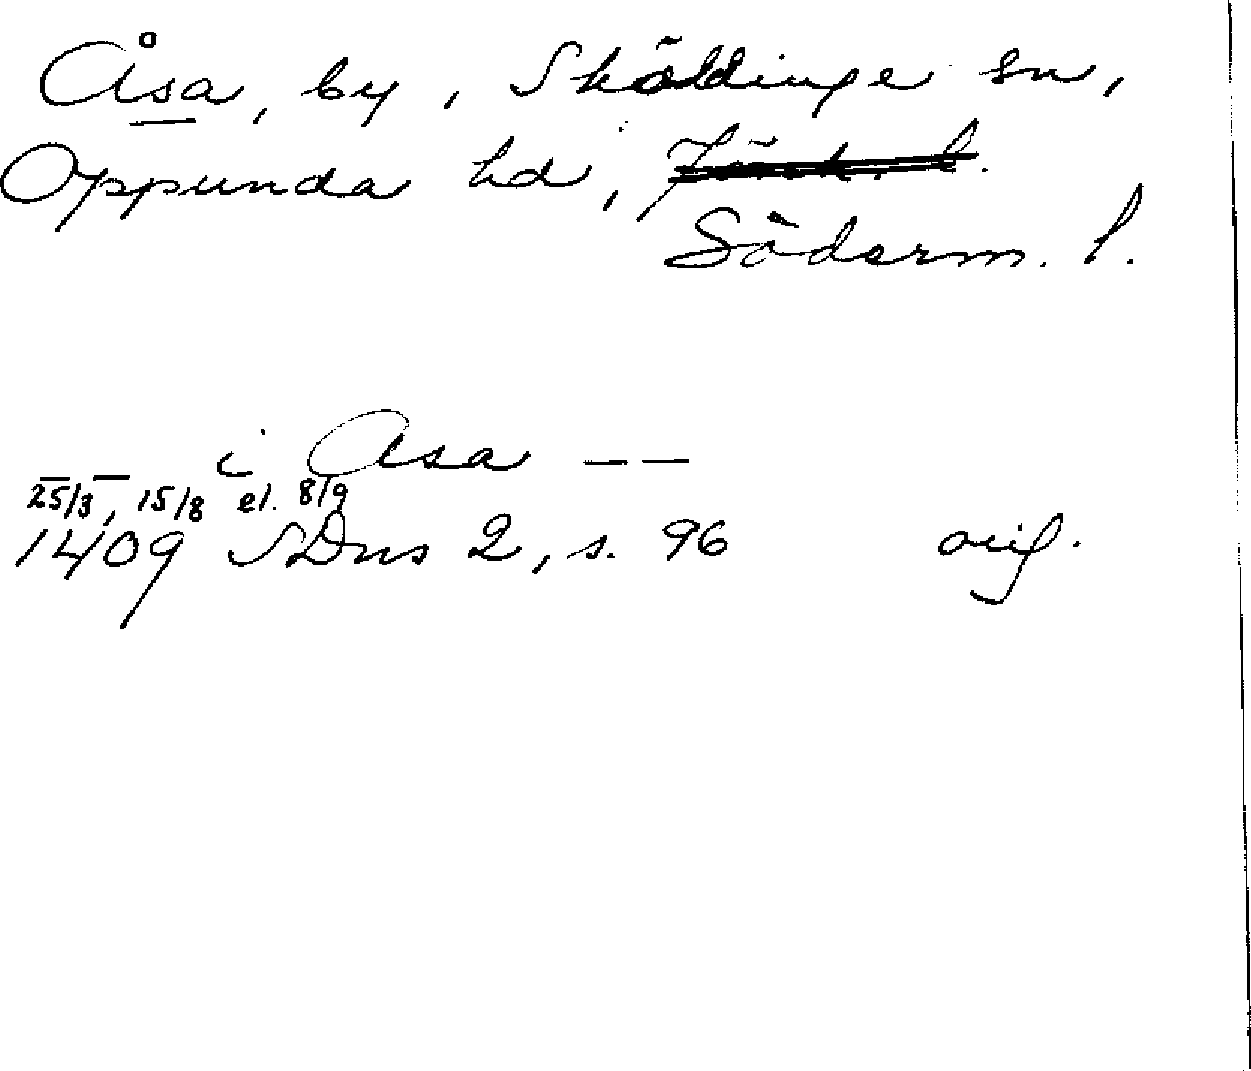 Åsa, by, Sköldinge sn,
Oppunda hd,
Söderm. l.
i Asa — —
25/3, 15/8 el. 8/9
1409 SDns 2, s. 96 orig.